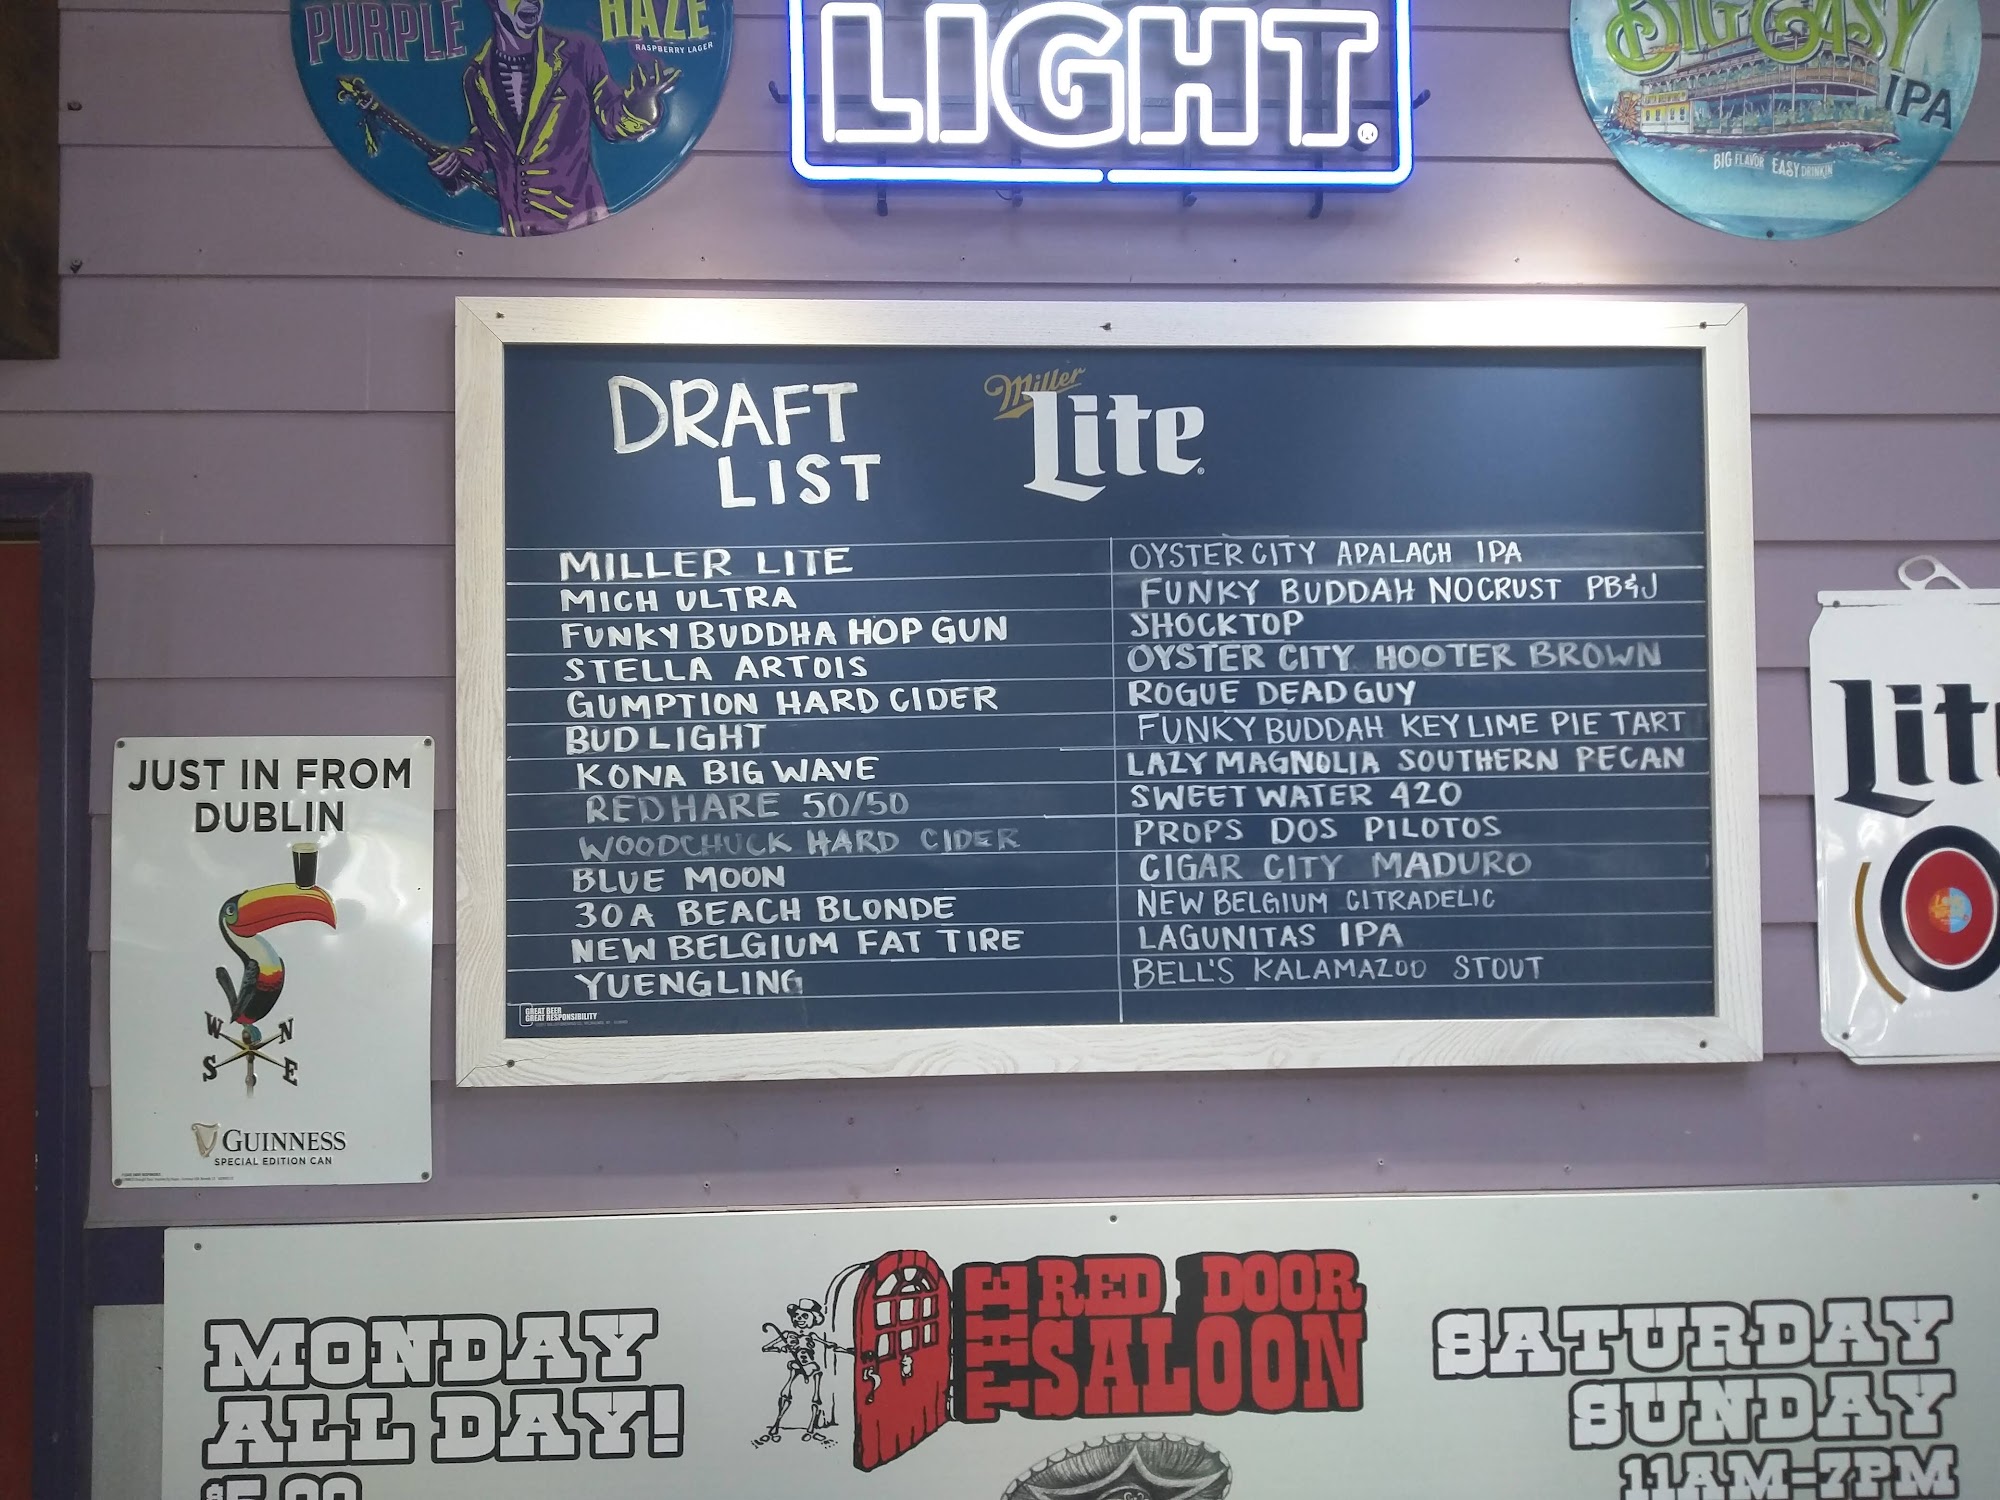 PURPLE HAZE
RASPBERRY LAGER
LIGHT
BIG EASY
IPA
BIG FLAVOR EASY DRINKIN'
DRAFT
LIST
Miller
Lite
MILLER LITE
MICH ULTRA
FUNKY BUDDHA HOP GUN
STELLA ARTOIS
GUMPTION HARD CIDER
BUD LIGHT
KONA BIG WAVE
RED HARE 50/50
WOODCHUCK HARD CIDER
BLUE MOON
30A BEACH BLONDE
NEW BELGIUM FAT TIRE
YUENGLING
OYSTER CITY APALACH IPA
FUNKY BUDDAH NO CRUST PB&J
SHOCKTOP
OYSTER CITY HOOTER BROWN
ROGUE DEAD GUY
FUNKY BUDDAH KEY LIME PIE TART
LAZY MAGNOLIA SOUTHERN PECAN
SWEET WATER 420
PROPS DOS PILOTOS
CIGAR CITY MADURO
NEW BELGIUM CITRADELIC
LAGUNITAS IPA
BELL'S KALAMAZOO STOUT
GREAT BEER
GREAT RESPONSIBILITY
JUST IN FROM
DUBLIN
W N
S E
GUINNESS
SPECIAL EDITION CAN
Lit
MONDAY
ALL DAY!
$5.00
THE RED DOOR
SALOON
SATURDAY
SUNDAY
11AM-7PM